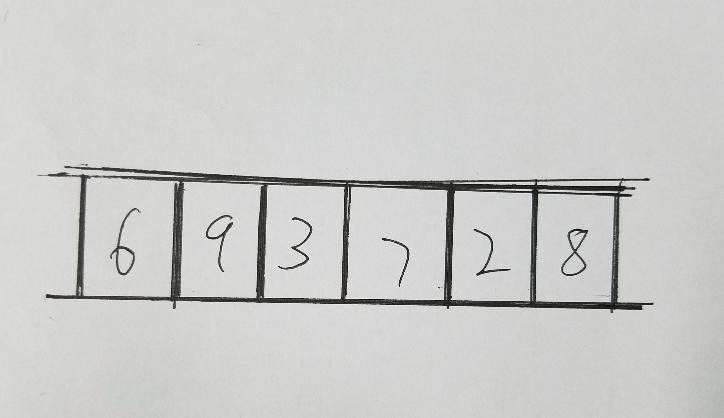 6 9 3 7 2 8